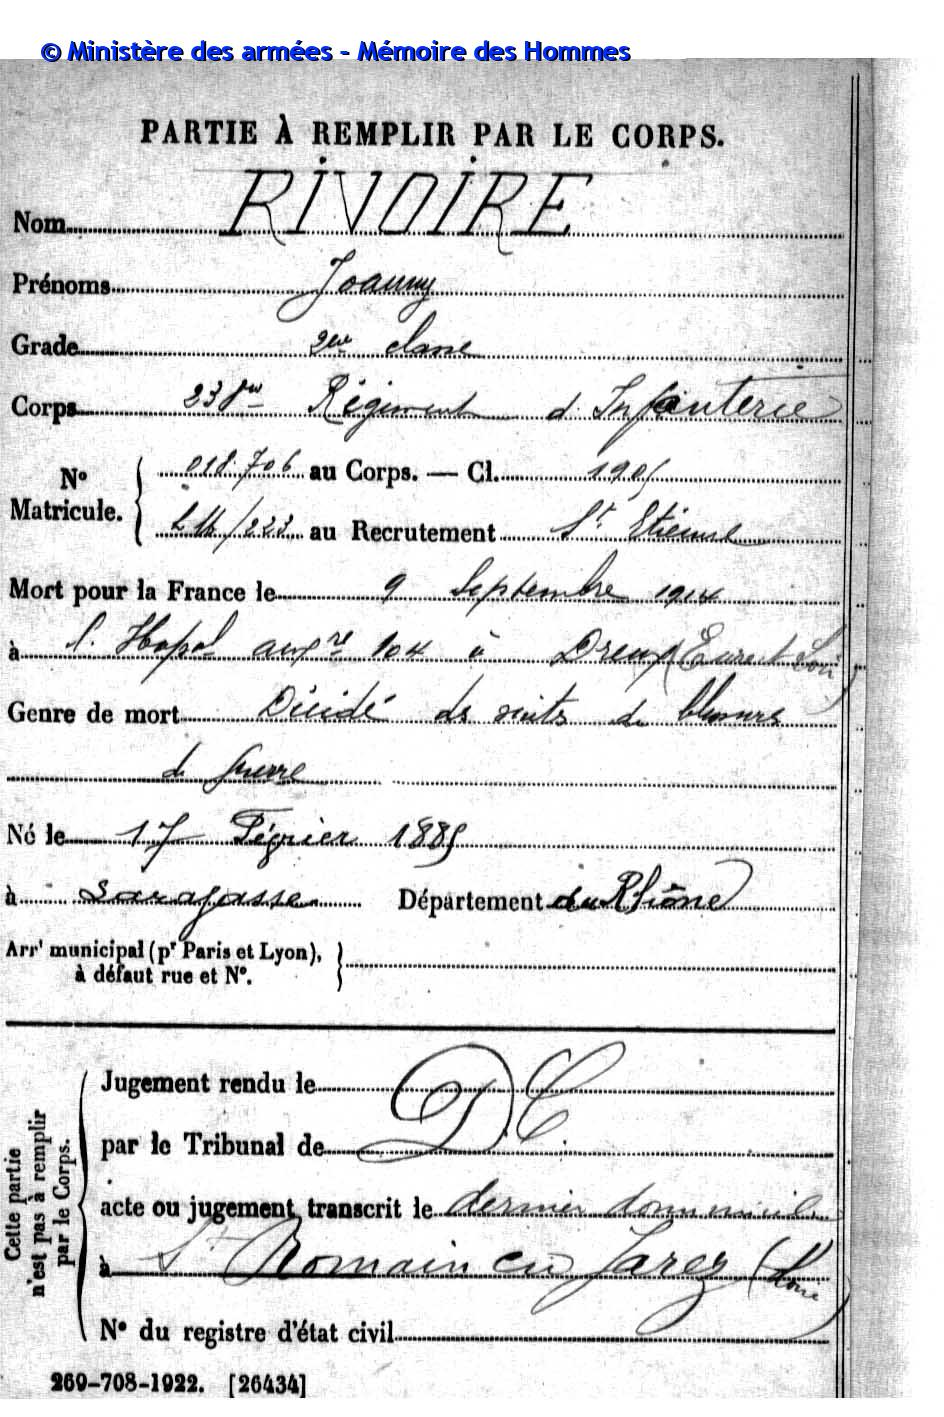 © Ministère des armées - Mémoire des Hommes
PARTIE À REMPLIR PAR LE CORPS.
Nom RIVOIRE
Prénoms Joanny
Grade 2eme classe
Corps 238me Régiment d'Infanterie
No Matricule. 018.706 au Corps. — Cl. 1905
/223 au Recrutement St Etienne
Mort pour la France le 9 Septembre 1914
à l'Hopal auxre 104 à Dreux (Eure et Loir)
Genre de mort Décidé des suites de blessures
de guerre
Né le 17 Février 1885
à Saragosse Département du Rhône
Arrt municipal (pr Paris et Lyon), à défaut rue et No.
Cette partie n'est pas à remplir par le Corps.
Jugement rendu le DC
par le Tribunal de
acte ou jugement transcrit le dernier domicile
à St Romain en Jarez (Loire)
No du registre d'état civil
269-708-1922. [26434]